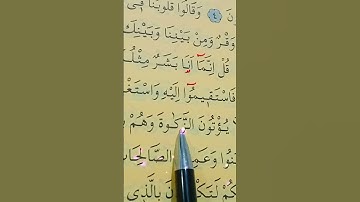 نَ ٤ وَقَالُوا قُلُوبُنَا فِٓى
وَقْرٌ وَمِنْ بَيْنِنَا وَبَيْنِكَ
قُلْ اِنَّمَٓا اَنَا۬ بَشَرٌ مِثْلُ
فَاسْتَقٖيمُٓوا اِلَيْهِ وَاسْتَغْ
لَا يُؤْتُونَ الزَّكٰوةَ وَهُمْ بِ
مَنُوا وَعَمِ الصَّالِحَا
كُمْ لَتَكْ ونَ بِالَّذٖى